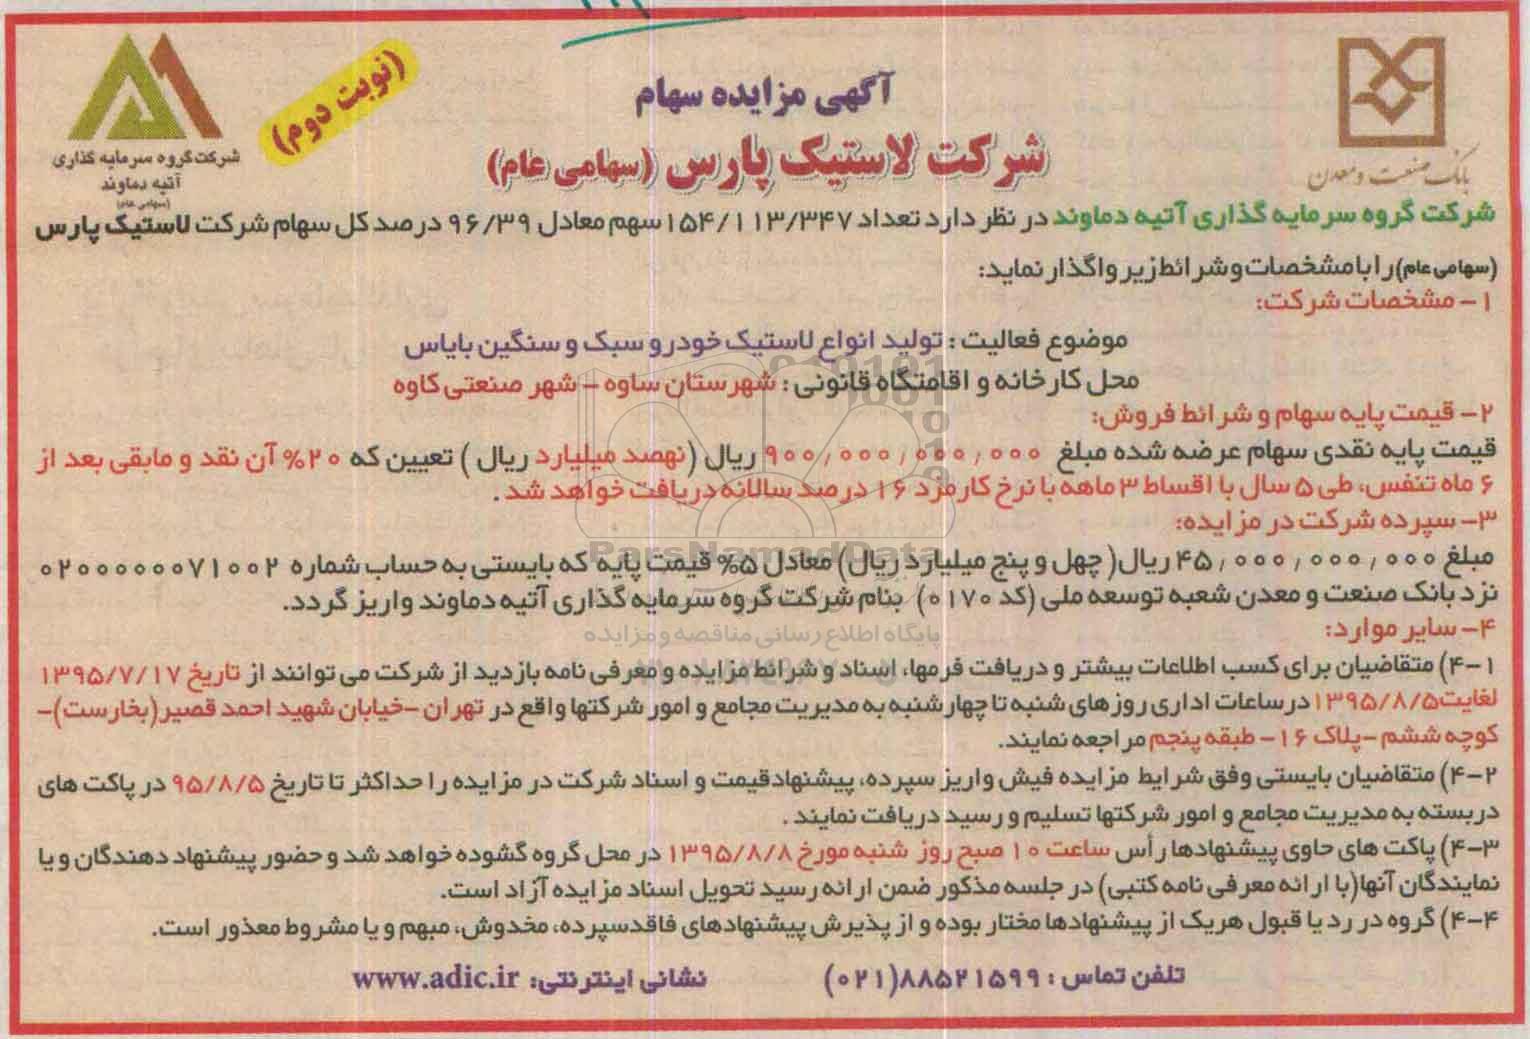 آگهی مزایده سهام
(نوبت دوم)
شرکت لاستیک پارس (سهامی عام)
بانک صنعت و معدن
شرکت گروه سرمایه گذاری
آتیه دماوند
(سهامی عام)
شرکت گروه سرمایه گذاری آتیه دماوند در نظر دارد تعداد ۱۵۴/۱۱۳/۳۴۷ سهم معادل ۹۶/۳۹ درصد کل سهام شرکت لاستیک پارس
(سهامی عام) را با مشخصات و شرائط زیر واگذار نماید:
۱- مشخصات شرکت:
موضوع فعالیت : تولید انواع لاستیک خودرو سبک و سنگین بایاس
محل کارخانه و اقامتگاه قانونی : شهرستان ساوه - شهر صنعتی کاوه
۲- قیمت پایه سهام و شرائط فروش:
قیمت پایه نقدی سهام عرضه شده مبلغ ۹۰۰٫۰۰۰٫۰۰۰٫۰۰۰ ریال (نهصد میلیارد ریال ) تعیین که ۲۰% آن نقد و مابقی بعد از
۶ ماه تنفس، طی ۵ سال با اقساط ۳ ماهه با نرخ کارمزد ۱۶ درصد سالانه دریافت خواهد شد .
۳- سپرده شرکت در مزایده:
مبلغ ۴۵٫۰۰۰٫۰۰۰٫۰۰۰ ریال( چهل و پنج میلیارد ریال) معادل ۵% قیمت پایه که بایستی به حساب شماره ۰۲۰۰۰۰۰۰۷۱۰۰۲
نزد بانک صنعت و معدن شعبه توسعه ملی (کد ۰۱۷۰) بنام شرکت گروه سرمایه گذاری آتیه دماوند واریز گردد.
۴- سایر موارد:
۴-۱) متقاضیان برای کسب اطلاعات بیشتر و دریافت فرمها، اسناد و شرائط مزایده و معرفی نامه بازدید از شرکت می توانند از تاریخ ۱۳۹۵/۷/۱۷
لغایت ۱۳۹۵/۸/۵ در ساعات اداری روزهای شنبه تا چهارشنبه به مدیریت مجامع و امور شرکتها واقع در تهران -خیابان شهید احمد قصیر(بخارست)-
کوچه ششم -پلاک ۱۶- طبقه پنجم مراجعه نمایند.
۴-۲) متقاضیان بایستی وفق شرایط مزایده فیش واریز سپرده، پیشنهادقیمت و اسناد شرکت در مزایده را حداکثر تا تاریخ ۹۵/۸/۵ در پاکت های
دربسته به مدیریت مجامع و امور شرکتها تسلیم و رسید دریافت نمایند .
۴-۳) پاکت های حاوی پیشنهادها رأس ساعت ۱۰ صبح روز شنبه مورخ ۱۳۹۵/۸/۸ در محل گروه گشوده خواهد شد و حضور پیشنهاد دهندگان و یا
نمایندگان آنها(با ارائه معرفی نامه کتبی) در جلسه مذکور ضمن ارائه رسید تحویل اسناد مزایده آزاد است.
۴-۴) گروه در رد یا قبول هریک از پیشنهادها مختار بوده و از پذیرش پیشنهادهای فاقدسپرده، مخدوش، مبهم و یا مشروط معذور است.
تلفن تماس : ۸۸۵۲۱۵۹۹(۰۲۱) نشانی اینترنتی: www.adic.ir
ParsNamadData
پایگاه اطلاع رسانی مناقصه و مزایده